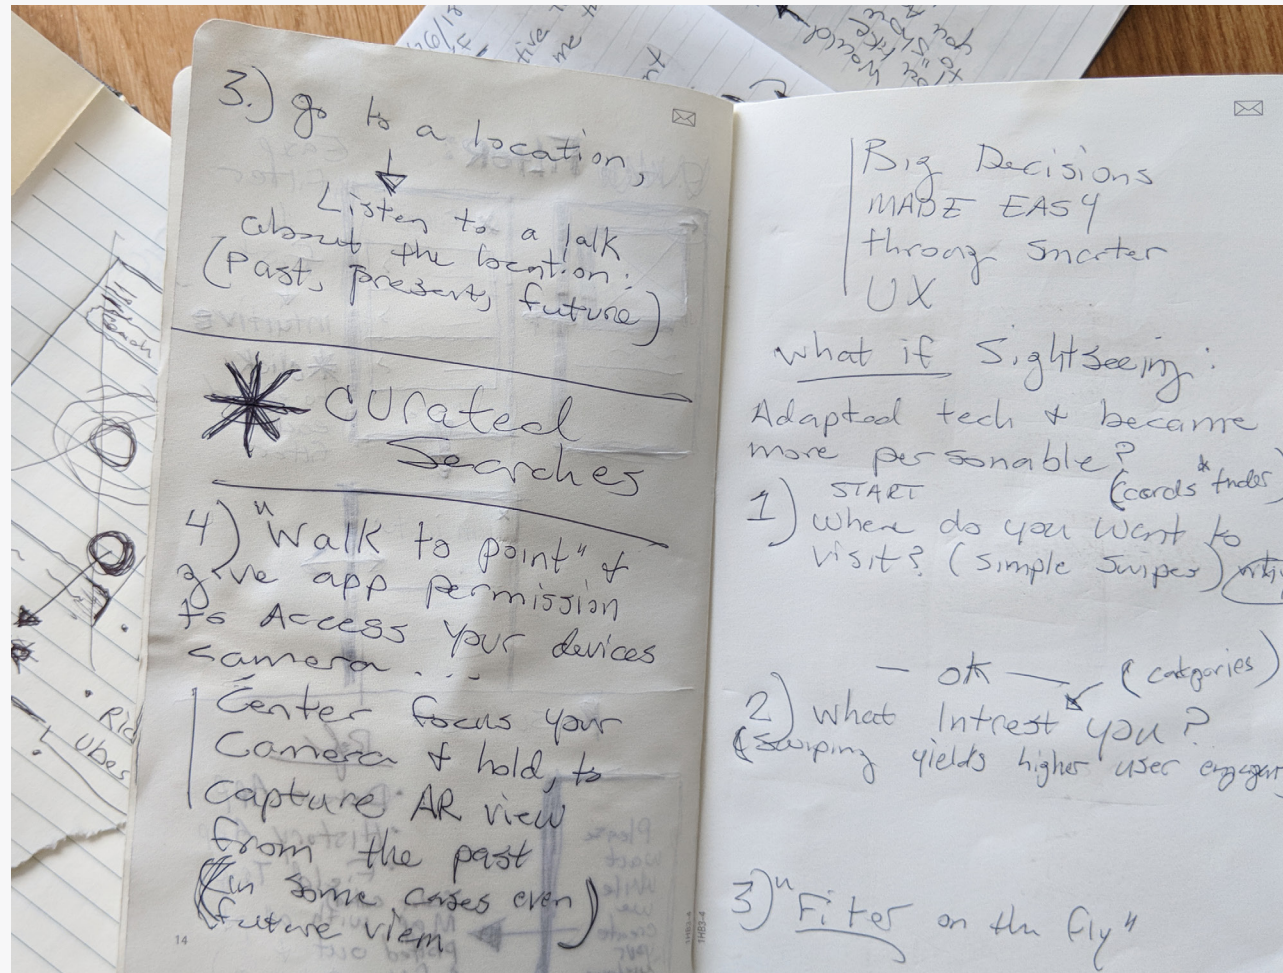 3.) go to a location,
Listen to a talk
about the location:
(Past, present, future)
* curated
Searches
4) "Walk to point" &
give app permission
to Access your devices
camera...
Center focus your
Camera & hold, to
capture AR view
from the past
(in some cases even
future view)
14
Big Decisions
MADE EASY
throug smarter
UX
what if Sightseeing:
Adapted tech & became
more personable?
(cards * tinder)
START
1) where do you want to
visit? (simple swipes)
— OK —
(catgories)
2) What Intrest you?
(Swiping yields higher user
3) "Filter on the fly"
Rid
Uber